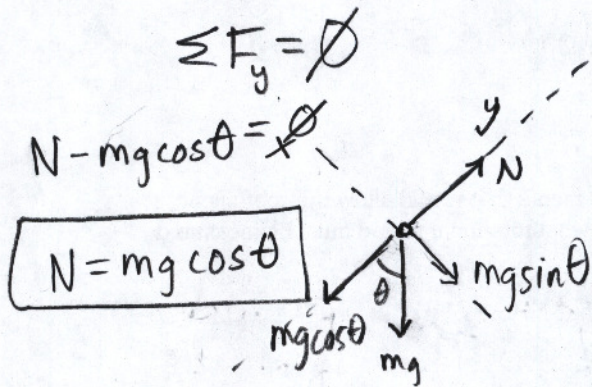 ΣF_y = 0
N - mg cosθ = 0
N = mg cosθ
x
y
N
mg sinθ
θ
mg cosθ
mg